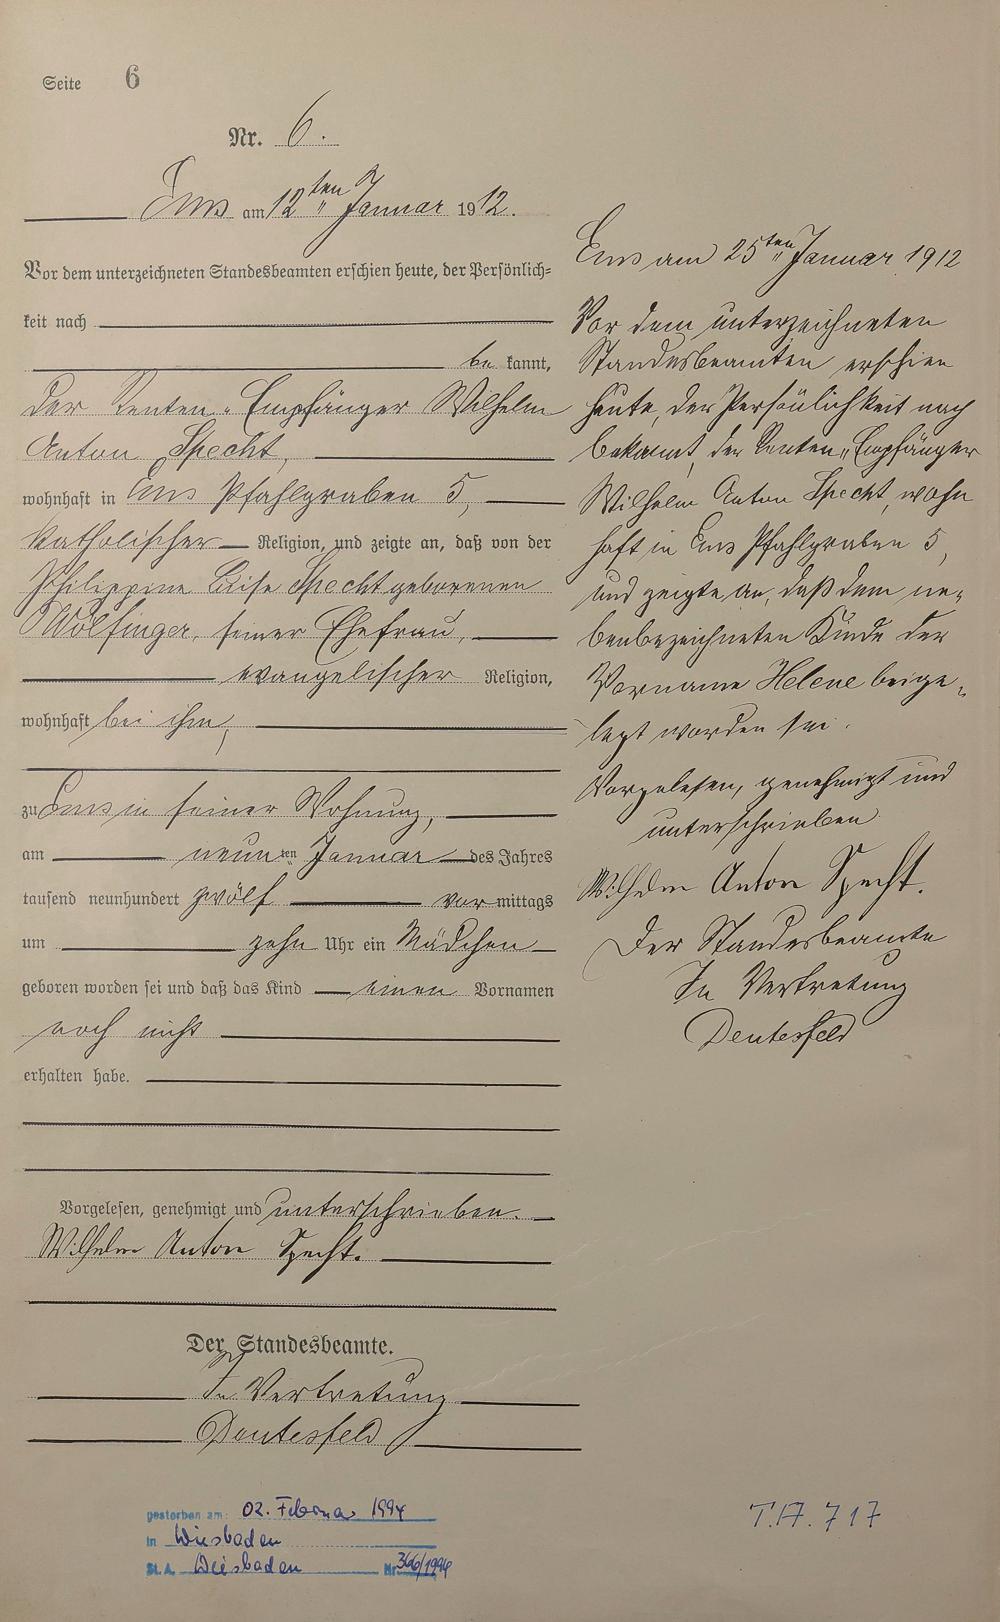 Seite 6
Nr. 6.
Ems am 12ten Januar 1912.
Vor dem unterzeichneten Standesbeamten erschien heute, der Persönlich=
keit nach
be kannt,
der Renten-Empfänger Wilhelm
Anton Specht,
wohnhaft in Ems Pfahlgraben 5,
katholischer Religion, und zeigte an, daß von der
Philippine Luise Specht geborenen
Wölfinger, seiner Ehefrau,
evangelischer Religion,
wohnhaft bei ihm,
zu Ems in seiner Wohnung,
am neunten Januar des Jahres
tausend neunhundert zwölf vor mittags
um zehn Uhr ein Mädchen
geboren worden sei und daß das Kind einen Vornamen
noch nicht
erhalten habe.
Vorgelesen, genehmigt und unterschrieben.
Wilhelm Anton Specht.
Der Standesbeamte.
In Vertretung
Deutesfeld
gestorben am: 02. Februar 1994
in Wiesbaden
St. A. Wiesbaden Nr. 366/1994
Ems am 25ten Januar 1912
Vor dem unterzeichneten
Standesbeamten erschien
heute, der Persönlichkeit nach
bekannt, der Renten-Empfänger
Wilhelm Anton Specht, wohn
haft in Ems Pfahlgraben 5,
und zeigte an, daß dem ne-
benbezeichneten Kinde der
Vorname Helene beige-
legt worden sei.
Vorgelesen, genehmigt und
unterschrieben
Wilhelm Anton Specht.
Der Standesbeamte
In Vertretung
Deutesfeld
T.A. 717